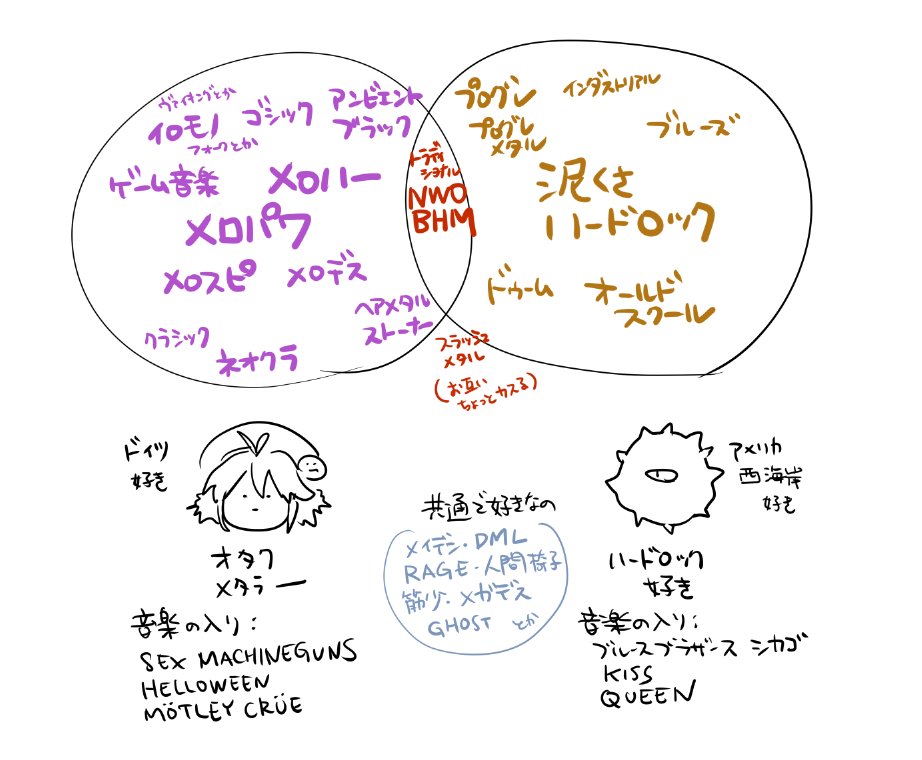 ヴァイキングとか
イロモノ
フォークとか
ゴシック
アンビエント
ブラック
ゲーム音楽
メロハー
メロパワ
メロスピ
メロデス
ヘアメタル
ストーナー
クラシック
ネオクラ
トラディ
ショナル
NWO
BHM
スラッシュ
メタル
(お互い
ちょっとカスる)
プログレ
インダストリアル
プログレ
メタル
ブルーズ
泥くさ
ハードロック
ドゥーム
オールド
スクール
ドイツ
好き
オタク
メタラー
音楽の入り:
SEX MACHINEGUNS
HELLOWEEN
MÖTLEY CRÜE
共通で好きなの
メイデン・DML
RAGE・人間椅子
筋少・メガデス
GHOST とか
アメリカ
西海岸
好き
ハードロック
好き
音楽の入り:
ブルースブラザース シカゴ
KISS
QUEEN